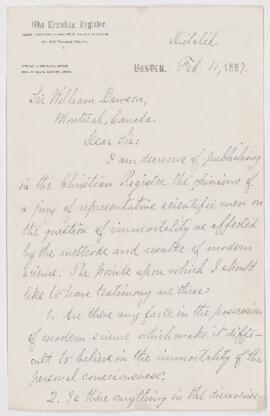 The Christian Register.
Dictated.
Boston, Feb. 11, 1887.
Sir William Dawson,
Montreal, Canada.
Dear Sir:
I am desirous of publishing
in the Christian Register the opinions of
a jury of representative scientific men on
the question of immortality as affected
by the methods and results of modern
science. The points upon which I should
like to have testimony are these:
1. Are there any facts in the possession
of modern science which make it diffi-
cult to believe in the immortality of the
personal consciousness?
2. Is there anything in the discoveries